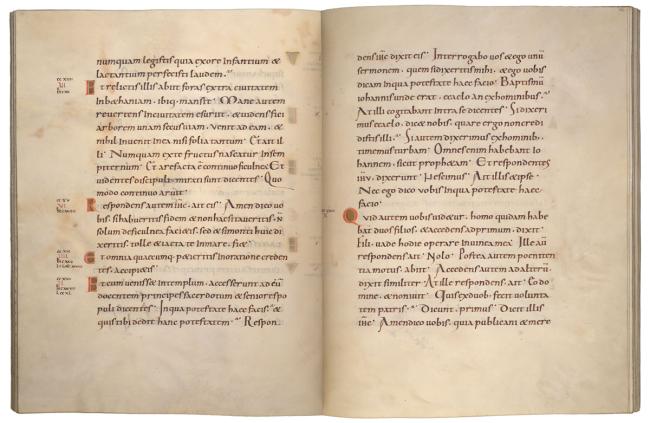 numquam legistis quia exore infantium &
lactantium perfecisti laudem.
Et relictis illis abiit foras extra ciuitatem
inbethaniam, ibiq; mansit. Mane autem
reuertens inciuitatem esuriit, & uidens fici
arborem unam secus uiam, uenit ad eam, &
nihil inuenit inea nisi folia tantum. Et ait il
li, Numquam exte fructus nascatur insem
piternum. Et arefacta ē continuo ficulnea. Et
uidentes discipuli, mirati sunt dicentes, Quo
modo continuo aruit.
Respondens autem ihc, ait eis. Amen dico uo
bis, si habueritis fidem & non haesitaueritis, ñ
solum de ficulnea facietis, sed & simonti huic di
xeritis, tolle & iacta te in mare, fiet.
Et omnia quaecumq; petieritis inoratione creden
tes, accipietis.
Et cum uenisset intemplum, accesserunt ad eū
docentem principes sacerdotum & seniores po
puli dicentes. Inqua potestate haec facis, &
quis tibi dedit hanc potestatem. Respon
dens ihc dixit eis. Interrogabo uos & ego unū
sermonem, quem si dixeritis mihi, & ego uobis
dicam inqua potestate haec facio. Baptismū
iohannis unde erat, e caelo an exhominibus.
At illi cogitabant intra se dicentes, Si dixeri
mus e caelo, dicet nobis, quare ergo non credi
distis illi. Si autem dixerimus exhominib;,
timemus turbam. Omnes enim habebant io
hannem, sicut prophetam. Et respondentes
ihu, dixerunt, Nescimus. Ait illis & ipse.
Nec ego dico uobis inqua potestate haec
facio.
Quid autem uobis uidetur, homo quidam habe
bat duos filios, & accedens ad primum, dixit,
Fili, uade hodie operare inuinea mea. Ille aū
respondens ait, Nolo. Postea autem poeniten
tia motus, abiit. Accedens autem ad alterū,
dixit similiter. At ille respondens, ait, Eo do
mine, & non iuit. Quis exduob; fecit uolunta
tem patris. Dicunt, primus. Dicit illis
ihc, Amen dico uobis, quia publicani & mere